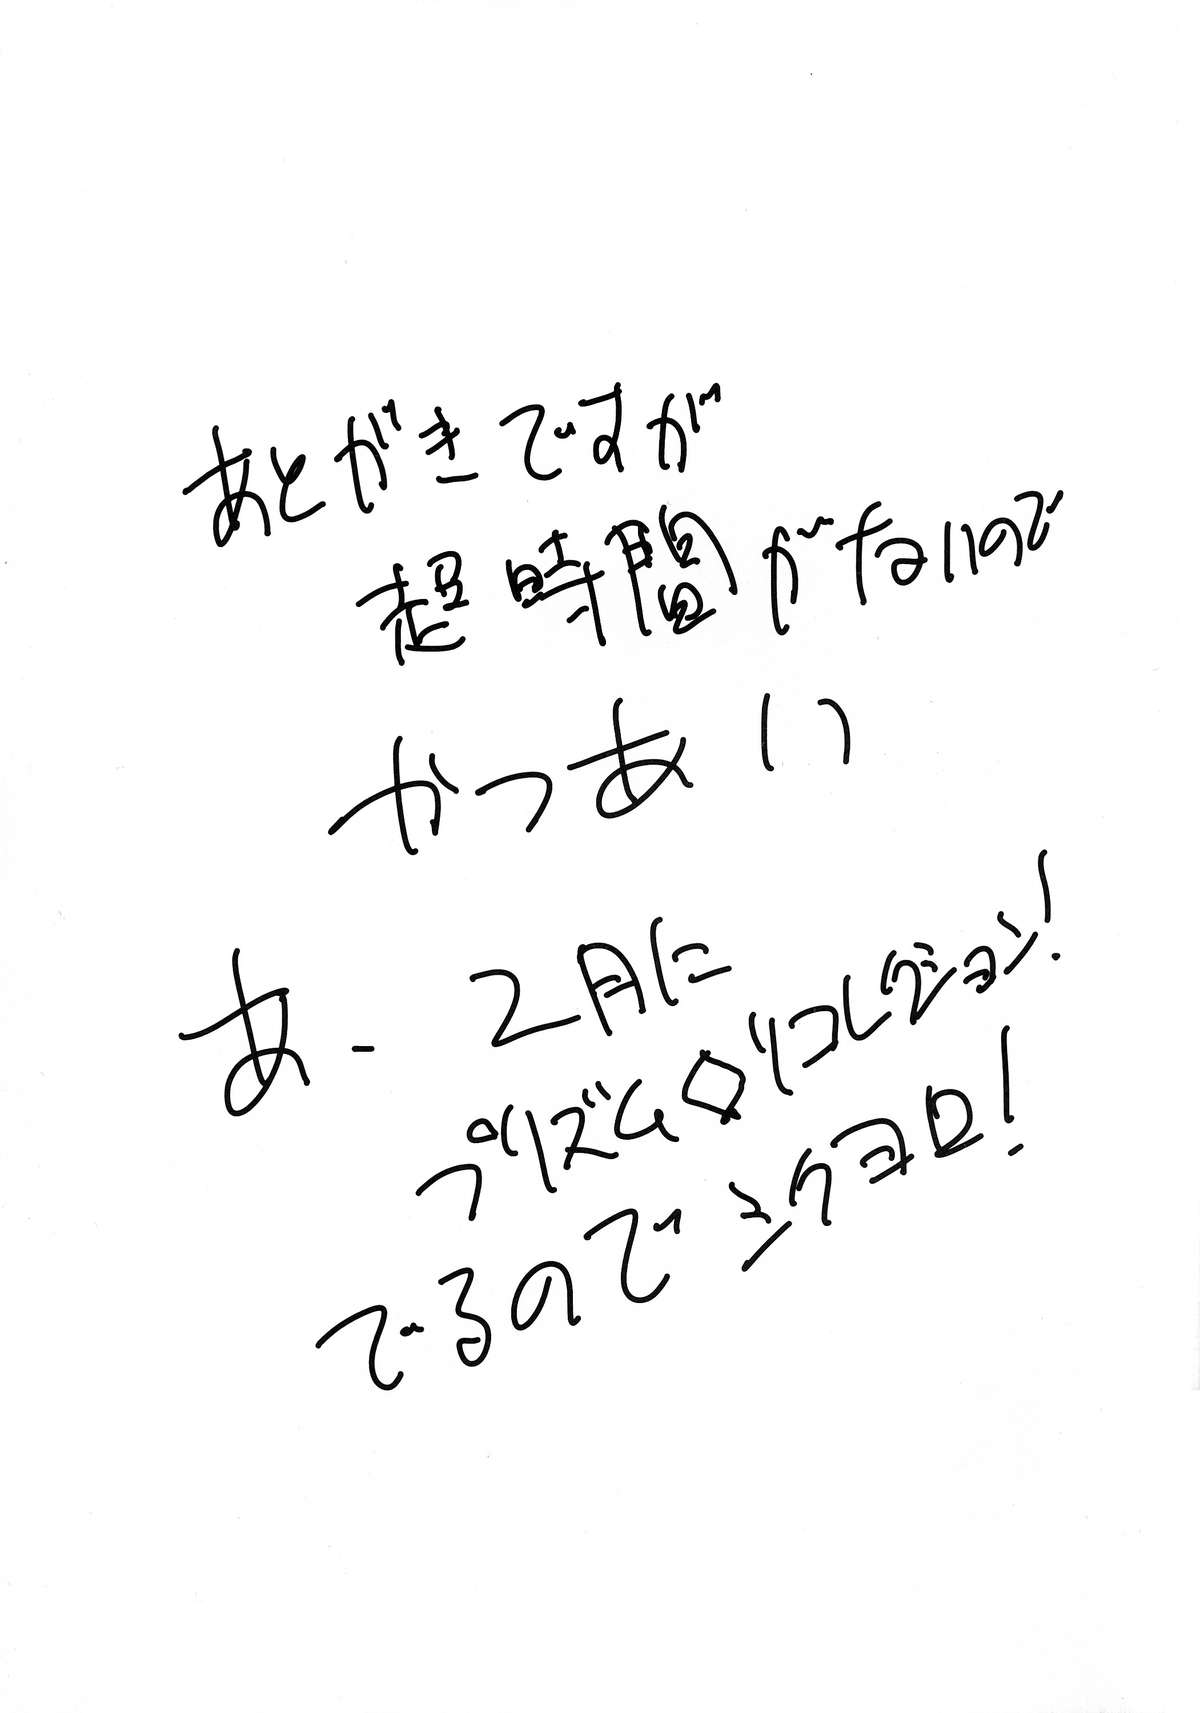 あとがきですが
超時間がないので
かつあい
あ- 2月に
プリズム◇リコレクション!
でるのでヨクヨロ!